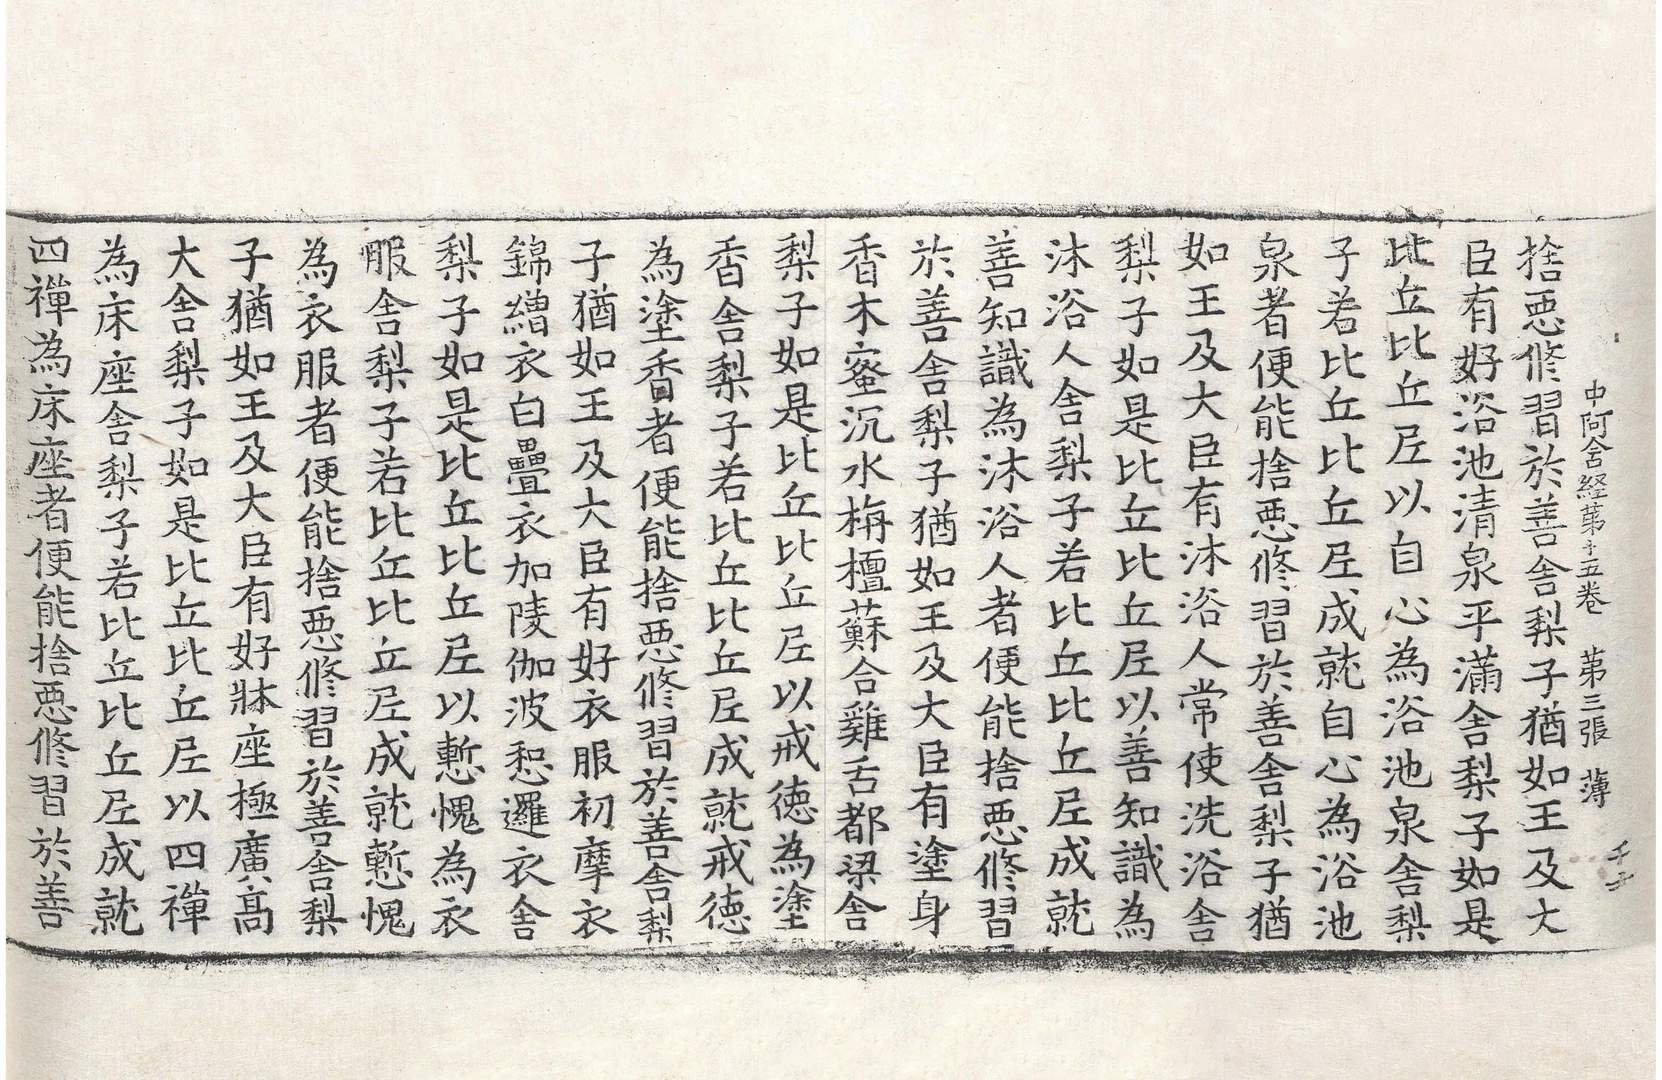 中阿含経苐十五卷 苐三張 薄
捨悪修習於善舍梨子猶如王及大
臣有好浴池清泉平滿舍梨子如是
比丘比丘尼以自心為浴池泉舍梨
子若比丘比丘尼成就自心為浴池
泉者便能捨悪修習於善舍梨子猶
如王及大臣有沐浴人常使洗浴舍
梨子如是比丘比丘尼以善知識為
沐浴人舍梨子若比丘比丘尼成就
善知識為沐浴人者便能捨悪修習
於善舍梨子猶如王及大臣有塗身
香木蜜沉水栴檀蘇合雞舌都梁舍
梨子如是比丘比丘尼以戒徳為塗
香舍梨子若比丘比丘尼成就戒徳
為塗香者便能捨悪修習於善舍梨
子猶如王及大臣有好衣服初摩衣
錦繒衣白疊衣加陵伽波惒邏衣舍
梨子如是比丘比丘尼以慙愧為衣
服舍梨子若比丘比丘尼成就慙愧
為衣服者便能捨悪修習於善舍梨
子猶如王及大臣有好牀座極廣高
大舍梨子如是比丘比丘尼以四禪
為床座舍梨子若比丘比丘尼成就
四禪為床座者便能捨悪修習於善